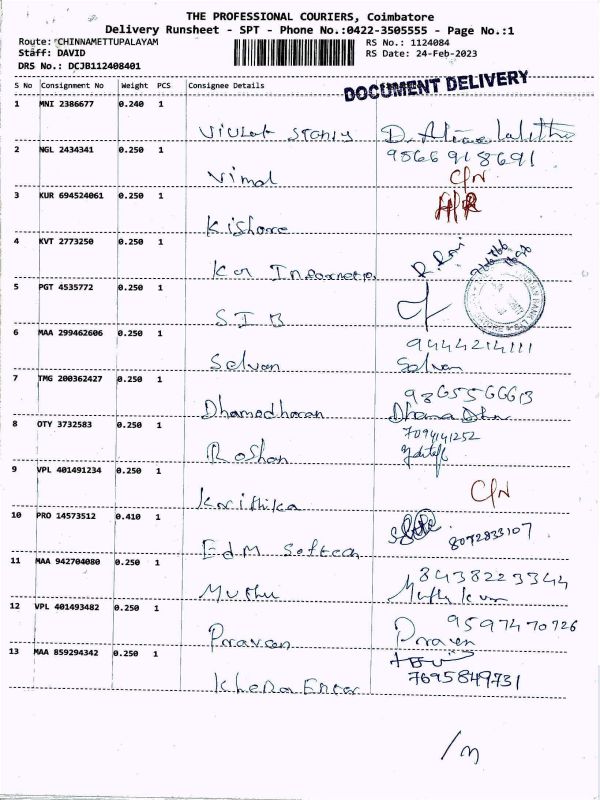 THE PROFESSIONAL COURIERS, Coimbatore
Delivery Runsheet - SPT - Phone No.:0422-3505555 - Page No.:1
Route: CHINNAMETTUPALAYAM RS No.: 1124084
Staff: DAVID RS Date: 24-Feb-2023
DRS No.: DCJB112408401
DOCUMENT DELIVERY
S No Consignment No Weight PCS Consignee Details
1 MNI 2386677 0.240 1
2 NGL 2434341 0.250 1 9566918691
Vimal C/N
3 KUR 694524061 0.250 1
Kishore
4 KVT 2773250 0.250 1
R. Ravi
5 PGT 4535772 0.250 1
SIB
6 MAA 299462606 0.250 1 9444214111
Selvan Selvan
7 TMG 200362427 0.250 1
Dhamodharan
8 OTY 3732583 0.250 1 7094141252
Roshan
9 VPL 401491234 0.250 1
Krithika C/N
10 PRO 14573512 0.410 1
8072833107
EdM Softech
11 MAA 942704080 0.250 1 8438223344
Muthu
12 VPL 401493482 0.250 1 9597470726
Praveen Praveen
13 MAA 859294342 0.250 1
7695849731